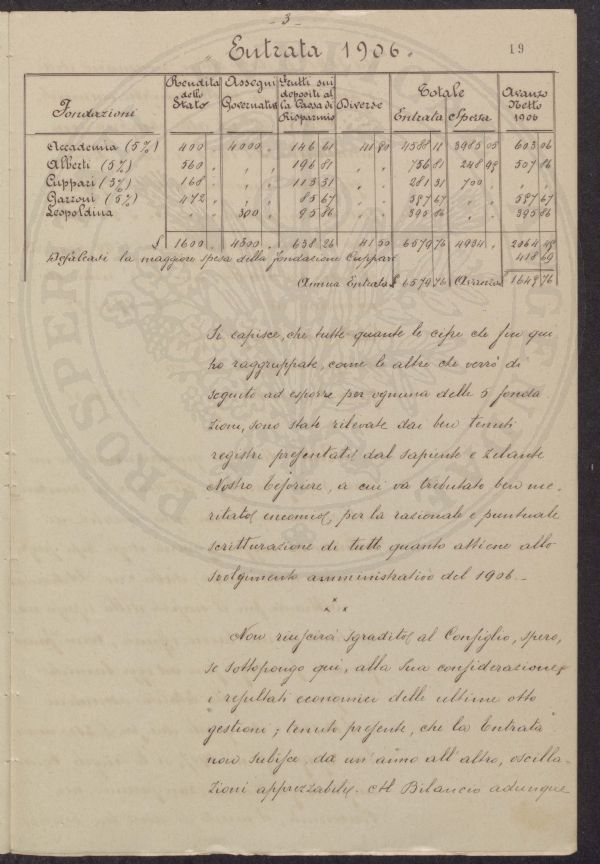 - 3 -
19
Entrata 1906.
Fondazioni | Rendita dello Stato | Assegni Governativi | Frutti sui depositi al la Cassa di Risparmio | Diverse | Totale Entrata | Spesa | Avanzo Netto 1906
Accademia (5%) 400 " 4000 " 146 61 41 50 4588 11 3985 05 603 06
Alberti (5%) 560 " " " 196 81 " " 756 81 248 95 507 86
Cuppari (3%) 168 " " " 113 31 " " 281 31 700 " " "
Garzoni (5%) 472 " " " 85 67 " " 557 67 " " 557 67
Leopoldina " " 300 " 95 86 " " 395 86 " " 395 86
£ 1600 " 4300 " 638 26 41 50 6579 76 4934 " 2064 45
Defalcasi la maggiore spesa della fondazione Cuppari 418 69
Annua Entrata £ 6579 76 Avanzo 1645 76
Si capisce, che tutte quante le cifre che fin qui
ho raggruppate, come le altre che verrò di
seguito ad esporre per ognuna delle 5 fonda
zioni, sono state rilevate dai ben tenuti
registri presentati dal sapiente e zelante
Nostro Tesoriere, a cui va tributato ben me-
ritato encomio, per la razionale e puntuale
scritturazione di tutto quanto attiene allo
svolgimento amministrativo del 1906. -
x x x
Non riuscirà sgradito al Consiglio, spero,
se sottopongo qui, alla sua considerazione
i resultati economici delle ultime otto
gestioni; tenuto presente, che la Entrata
non subisce, da un'anno all'altro, oscilla-
zioni apprezzabili. Il Bilancio adunque